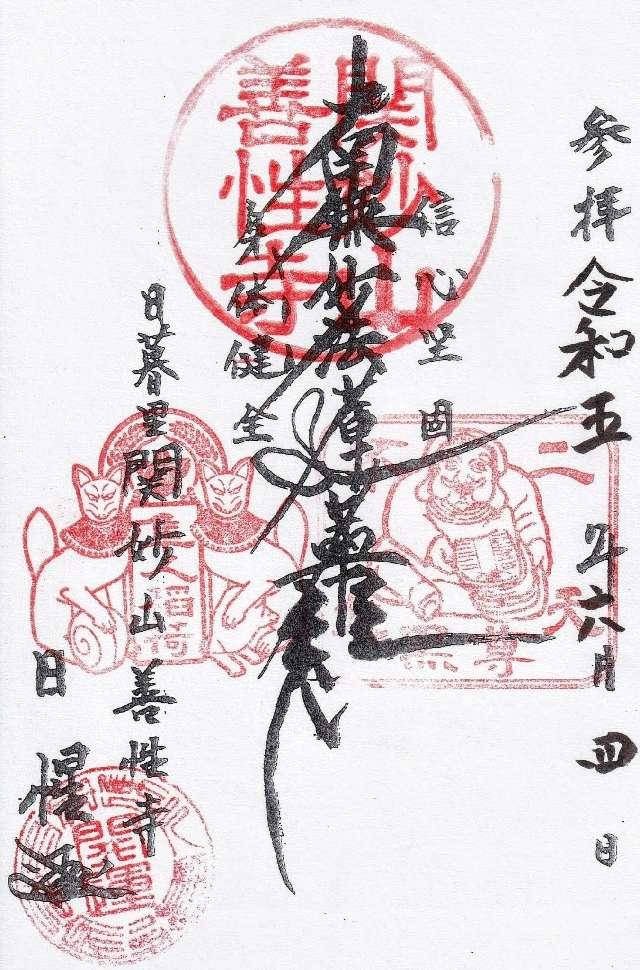 参拝 令和五年六月四日
信心堅固
南無妙法蓮華経
身体健全
日暮里 関妙山 善性寺
日
関妙山
善性寺